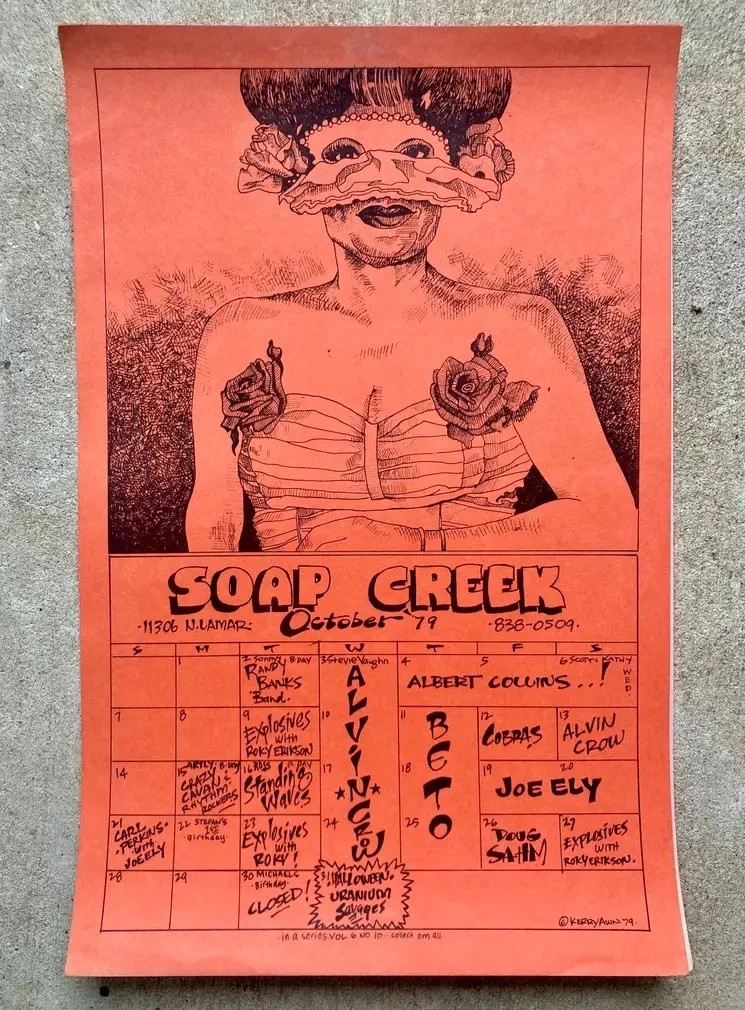 SOAP CREEK
·11306 N. LAMAR· October '79 ·838-0509·
S M T W T F S
1
2 Sonny's B-DAY
RANDY
BANKS
Band.
3 Stevie Vaughn
ALVIN CROW
4 5
ALBERT COLLINS...!
6 SCOTT & KATHY
WED.
7
8
9
EXPLOSIVES
with
ROKY ERIKSON
10
11
BETO
12
COBRAS
13
ALVIN
CROW
14
15 ARTLY'S B-DAY
CRAZY
CAVAN &
RHYTHM
ROCKERS
16 ROSS B-DAY
Standing
Waves
17
18
19 20
JOE ELY
21
CARL
·PERKINS·
·with·
JOE ELY
22 STEFAN'S
1ST
·Birthday·
23
EXPLOSIVES
with
ROKY!
24
25
26
DOUG
SAHM
27
EXPLOSIVES
with
ROKY ERIKSON.
28
29
30 MICHAELS
·Birthday·
CLOSED!
31 HALLOWEEN·
URANIUM
Savages
© KERRY AWN '79·
·in a series VOL. 6 NO. 10·· collect em all·